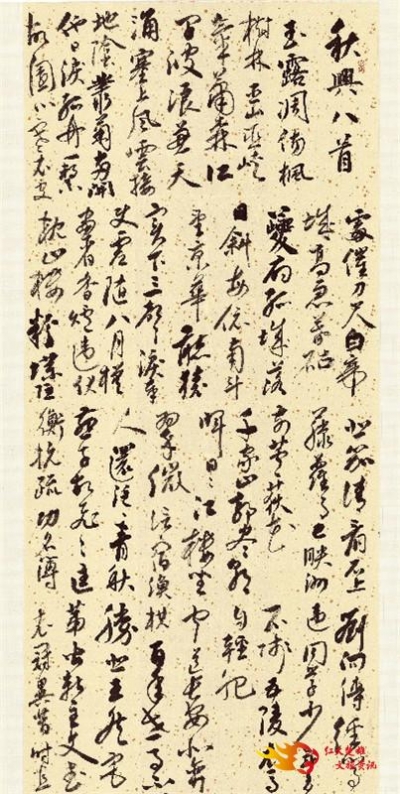 秋興八首
玉露凋傷楓
樹林巫山巫峽
氣蕭森江
間波浪兼天
湧塞上風雲接
地陰叢菊兩開
他日淚孤舟一繫
故園心寒衣處
處催刀尺白帝
城高急暮砧
夔府孤城落
日斜每依南斗
望京華聽猿
實下三聲淚奉
使虛隨八月槎
畫省香爐違伏
枕山樓粉堞隱
悲笳請看石上
藤蘿月已映洲
前蘆荻花
千家山郭靜朝
暉日日江樓坐
翠微信宿漁
人還泛清秋
燕子故飛飛匡
衡抗疏功名薄
劉向傳經心事
違同學少年多
不賤五陵衣馬
自輕肥
聞道長安似弈
棋百年世事不
勝悲王侯宅
第皆新主文武
衣冠異昔時直